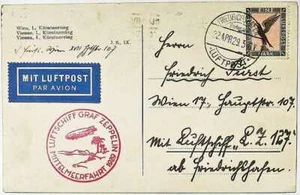 Wien, I., Kärntnerring
Vienne, I., Kärntnerring
Vienna, I., Kärntnerring
MIT LUFTPOST
PAR AVION
LUFTSCHIFF GRAF ZEPPELIN
MITTELMEERFAHRT 1929
22.APR.29.5
LUFTPOST
Herrn
Friedrich
Wien 17, Hauptstr. 107.
Mit Luftschiff "L.Z. 127."
ab Friedrichshafen